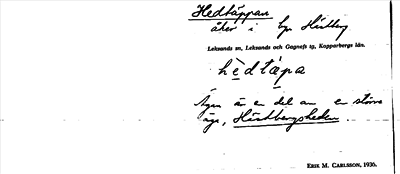 Hedtäppan
åker i byn Hästberg
Leksands sn, Leksands och Gagnefs tg, Kopparbergs län.
hèdtäpa
Ägan är en del av en större
äga, Hästbergsheden.
ERIK M. CARLSSON, 1936.